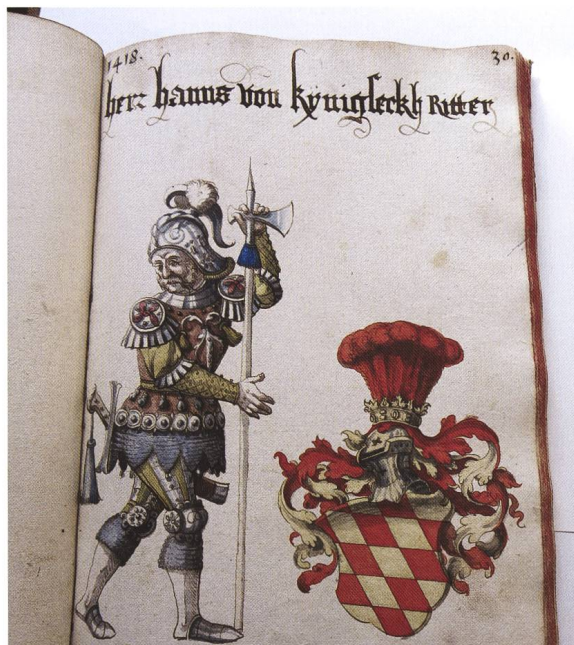 1418.
30.
herr hanns von kynigseckh Ritter